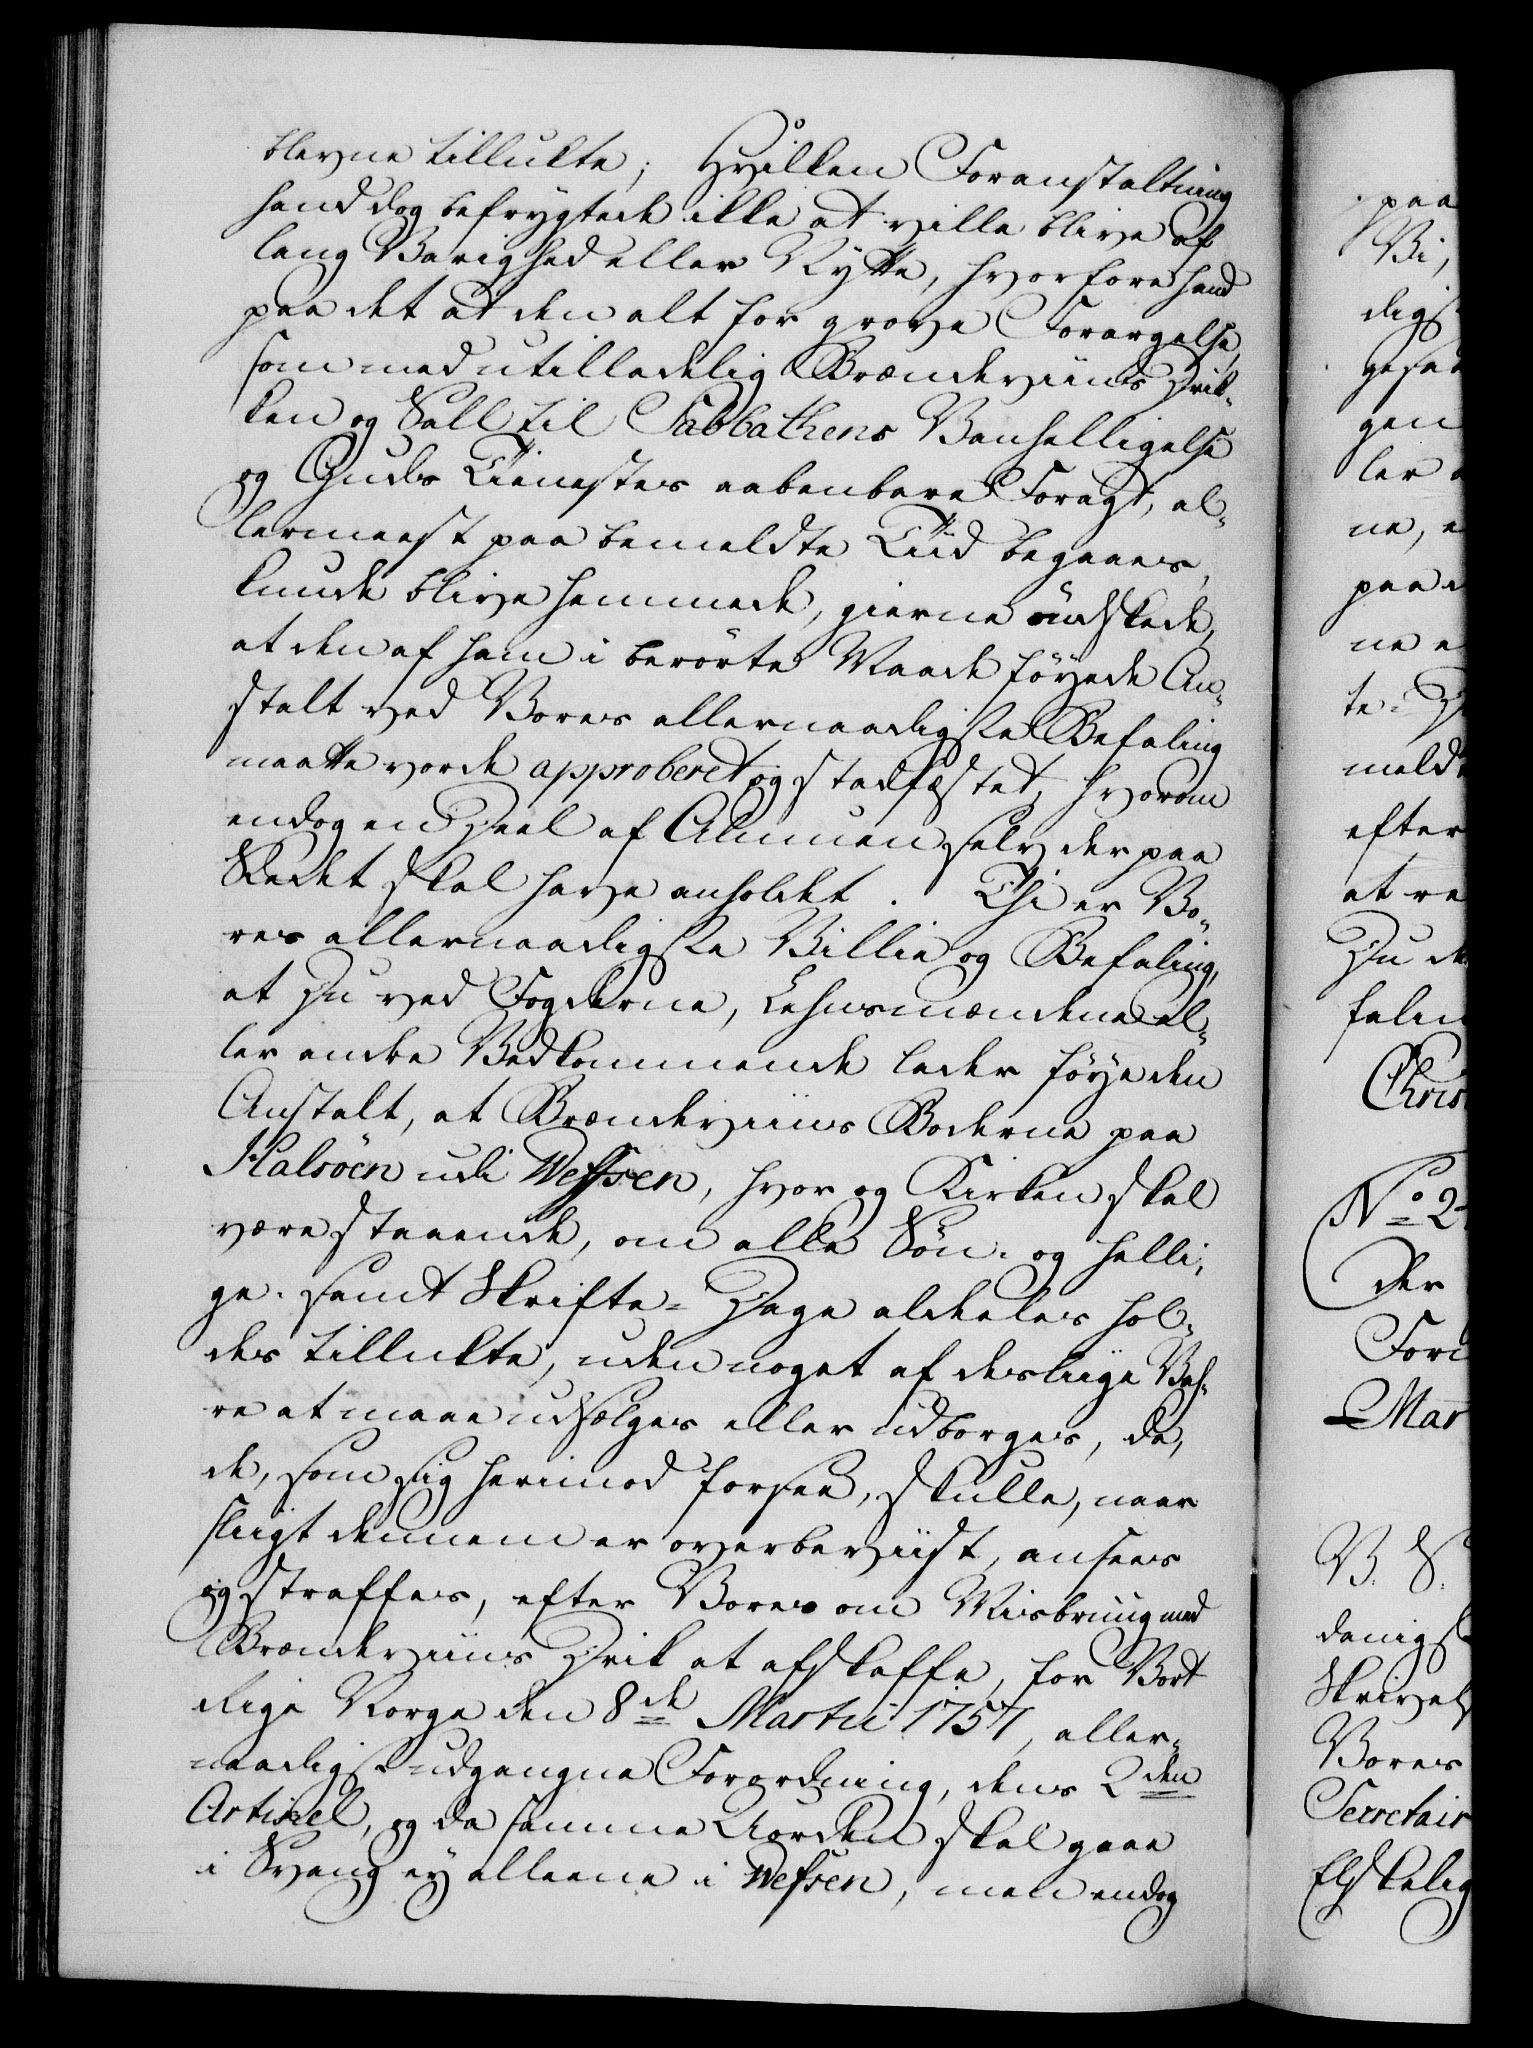 blevne tillukte; Hvilken Foranstaltning
hand dog befrygtede ikke at ville blive af
lang Varighed eller Nytte, hvorfore hand
paa det at den alt for grove Forargelse,
som med utilladelig Brændeviins Drik-
ken og Sall til Sabbathens Vanhelligelse
og Guds Tienestes aabenbare Foragt, al-
lermeest paa bemeldte Tiid begaaes,
kunde blive hemmede, gierne öndskede,
at den af ham i berörte Maade föyede An-
stalt ved Vores allernaadigste Befaling
maatte vorde approberet og stadfæstet, hvorom
endog en Deel af Almuen selv der paa
Stedet skal have anholdet. Thi er Vo-
res allernaadigste Villie og Befaling,
at Du ved Fogderne, Lehnsmændene el-
ler andre Vedkommende lader föye den
Anstalt, at Brændeviins Boderne paa
Halsöen udi Wefssen, hvor og Kirken skal
være staaende, om alle Søn- og Helli-
ge- samt Skrifte-Dage aldeeles hol-
des tillukte, uden noget af desliige Vah-
re at maae udsælges eller udborges, da,
de, som sig herimod forsee, skulle, naar
sliigt dennem er overbeviist, ansees
og straffes, efter Vores om Misbruug med
Brændeviins Drik at afskaffe, for Vort
Rige Norge den 8de Martii 1757, aller-
naadigst udgangne Forordning, dens 2den
Articul, og da samme Uorden skal gaae
i Svang ey alleene i Wefsen, men endog
paa
Vi,
digs
gesaa
gen
ler
ne, e
paa
ne e
te
meldt
efter
at re
Du
falin
Chris
No 2
Der
For
Mar
V. S.
danigs
Skrivel
Vores
Secretair
Elskelig